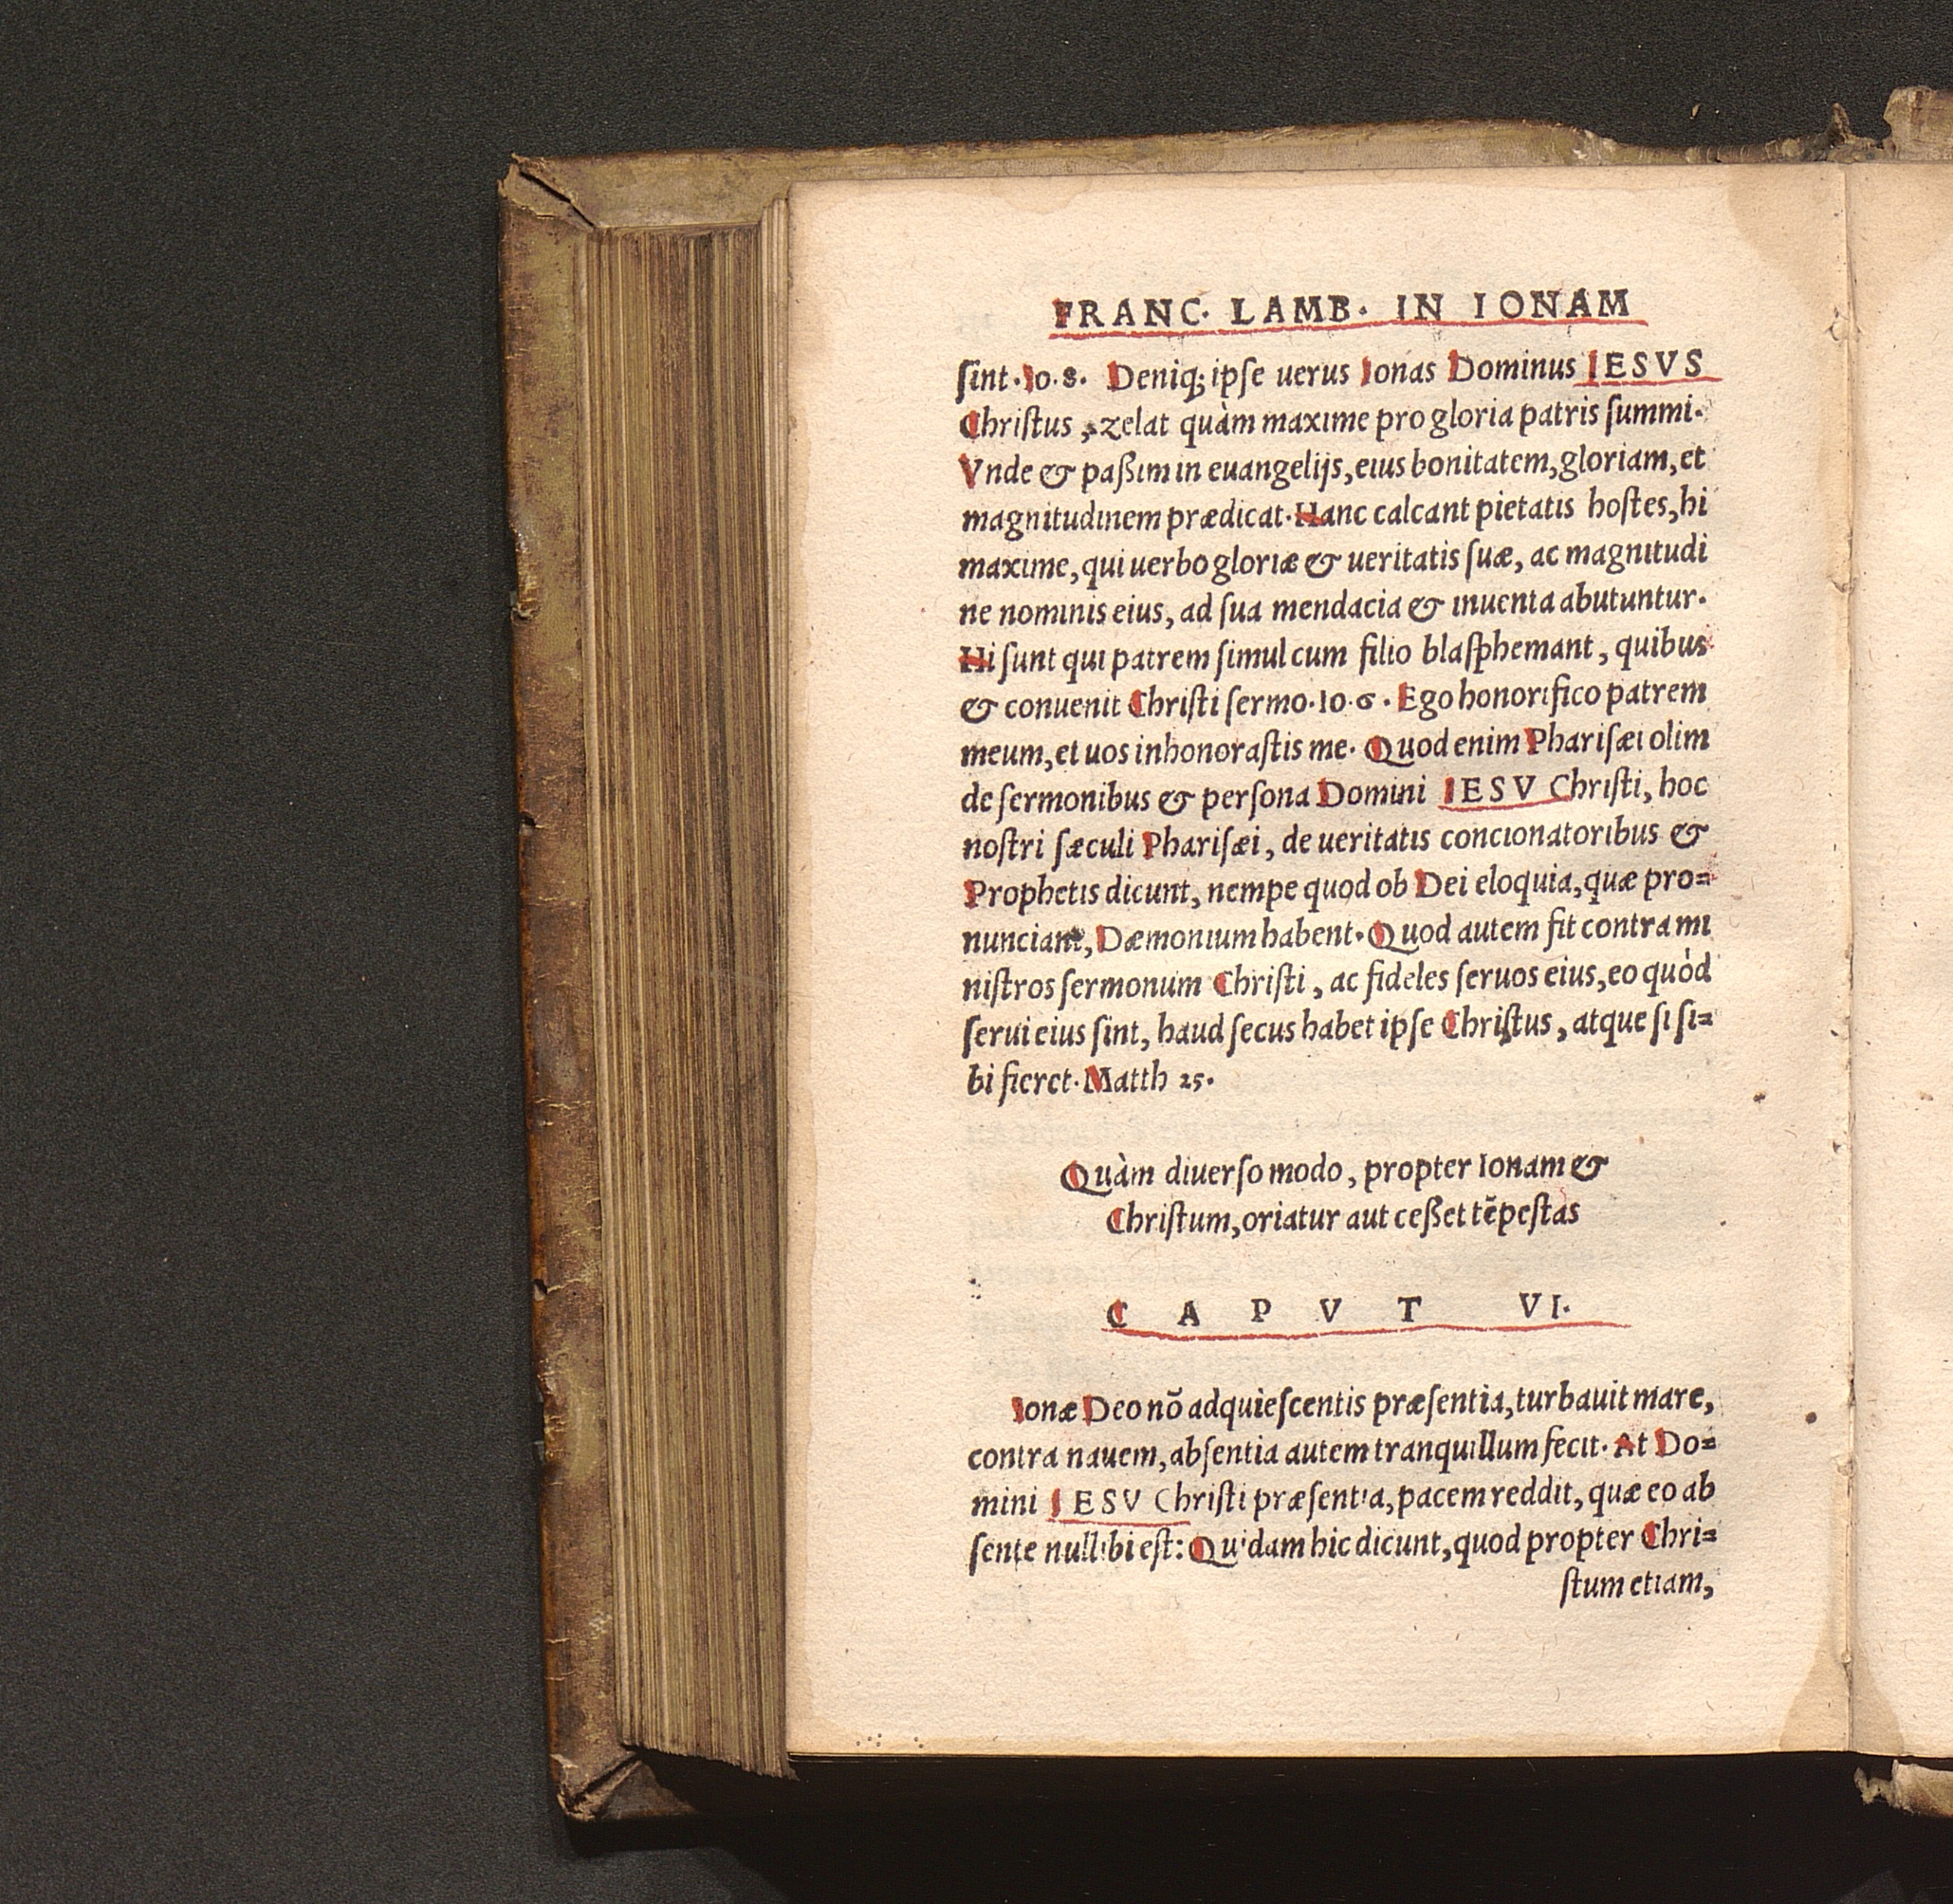 FRANC. LAMB. IN IONAM
ſint. Io. 8. Deniq; ipſe uerus Ionas Dominus IESVS
Chriſtus, zelat quàm maxime pro gloria patris ſummi.
Vnde & paßim in euangelijs, eius bonitatem, gloriam, et
magnitudinem prædicat. Hanc calcant pietatis hoſtes, hi
maxime, qui uerbo gloriæ & ueritatis ſuæ, ac magnitudi
ne nominis eius, ad ſua mendacia & inuenta abutuntur.
Hi ſunt qui patrem ſimul cum filio blaſphemant, quibus
& conuenit Chriſti ſermo. Io. 6. Ego honorifico patrem
meum, et uos inhonoraſtis me. Quod enim Phariſæi olim
de ſermonibus & perſona Domini IESV Chriſti, hoc
noſtri ſæculi Phariſæi, de ueritatis concionatoribus &
Prophetis dicunt, nempe quod ob Dei eloquia, quæ pro=
nunciant, Dæmonium habent. Quod autem fit contra mi
niſtros ſermonum Chriſti, ac fideles ſeruos eius, eo quòd
ſerui eius ſint, haud ſecus habet ipſe Chriſtus, atque ſi ſi=
bi fieret. Matth 25.
Quàm diuerſo modo, propter Ionam &
Chriſtum, oriatur aut ceßet tẽpeſtas
CAPVT VI.
Ionæ Deo nõ adquieſcentis præſentia, turbauit mare,
contra nauem, abſentia autem tranquillum fecit. At Do=
mini IESV Chriſti præſentia, pacem reddit, quæ eo ab
ſente nullibi eſt: Quidam hic dicunt, quod propter Chri=
ſtum etiam,